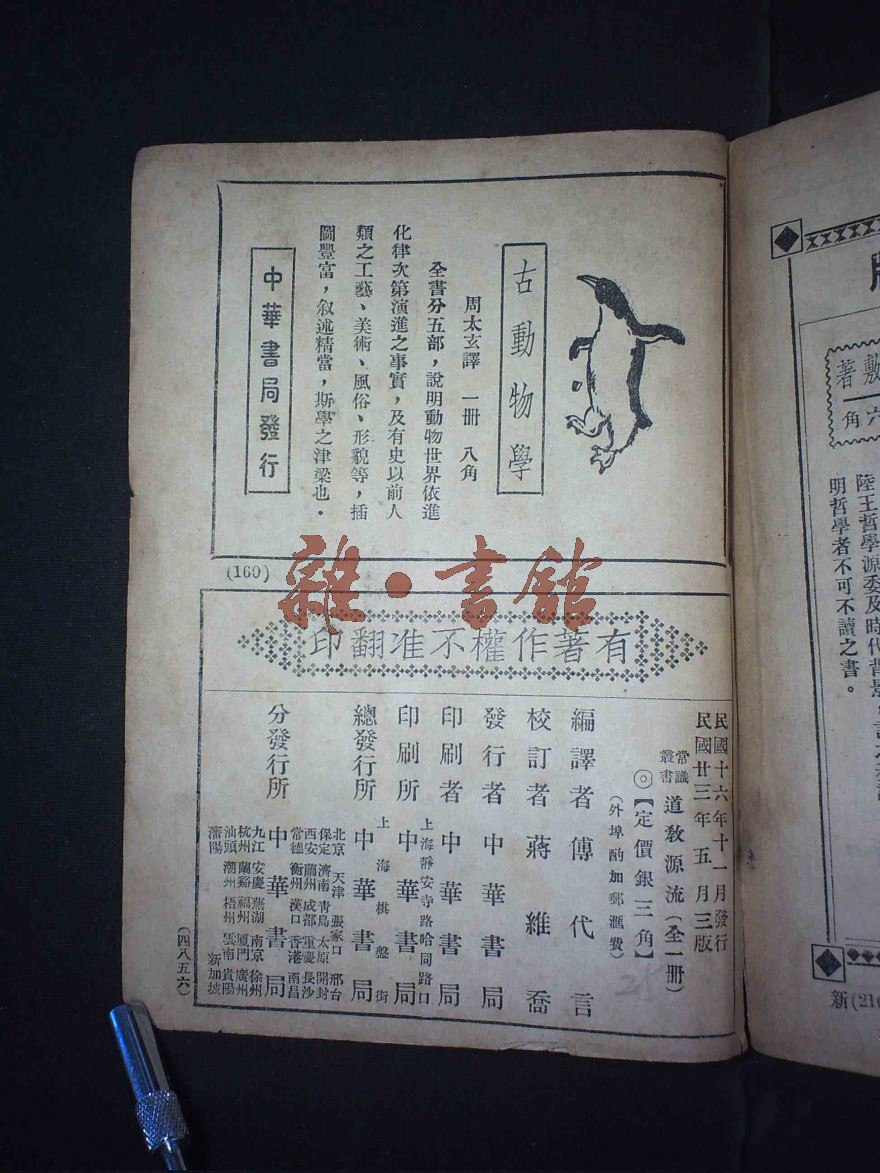 古動物學
周太玄譯　一冊　八角
全書分五部，說明動物世界依進
化律次第演進之事實，及有史以前人
類之工藝、美術、風俗、形貌等，插
圖豐富，叙述精當，斯學之津梁也．
中華書局發行
(160)
雜·書館
有著作權不准翻印
民國十六年十一月發行
民國廿三年五月三版
常識叢書 道教源流（全一冊）
◎【定價銀三角】
（外埠酌加郵滙費）
編譯者 傅代言
校訂者 蔣維喬
發行者 中華書局
印刷者 中華書局
上海靜安寺路哈同路口
印刷所 中華書局
上海棋盤街
總發行所 中華書局
分發行所 中華書局
北京 天津 張家口 邢台
保定 濟南 青島 太原 開封
西安 蘭州 成都 重慶 長沙
常德 衡州 漢口 香港 南昌
九江 安慶 蕪湖 南京 徐州
杭州 蘭谿 福州 厦門 廣州
汕頭 潮州 梧州 雲南 貴陽
瀋陽 新加坡
（四八五六）
敷著
六角
陸王哲學源委及時代背景
明哲學者不可不讀之書。
新(216